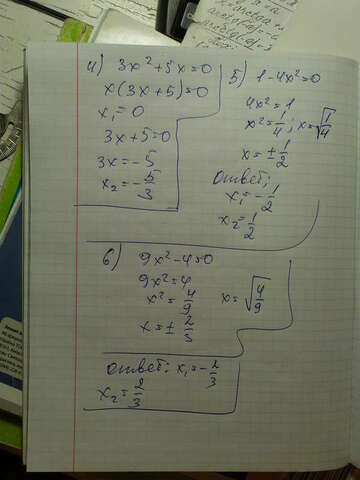 4) 3x²+5x=0
x(3x+5)=0
x₁=0
3x+5=0
3x=-5
x₂=-5/3
5) 1-4x²=0
4x²=1
x²=1/4; x=√1/4
x=±1/2
Ответ:
x₁=-1/2
x₂=1/2
6) 9x²-4=0
9x²=4
x²=4/9 x=√4/9
x=±2/3
Ответ: x₁=-2/3
x₂=2/3